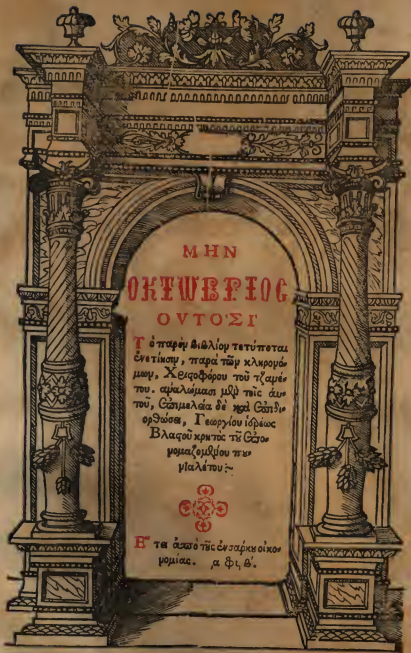 ΜΗΝ
ΟΚΤΩΒΡΙΟΣ
ΟΥΤΟΣΙ
Τὸ παρὸν βιβλίον τετύπεται
ἐνετίησιν, παρὰ τῶν κληρονό-
μων, Χριστοφόρου τοῦ τζανέ-
του. ἀναλώμασι μὲν τοῖς αὐ-
τοῦ, ἐπιμελεία δὲ καὶ ἐπιδι-
ορθώσει, Γεωργίου ἱερέως
Βλαστοῦ κρητὸς τοῦ ἐπο-
νομαζομένου πυ-
νιαλέτου:~
Ἔτει ἀπὸ τῆς ἐνσάρκου οἰκο-
νομίας.